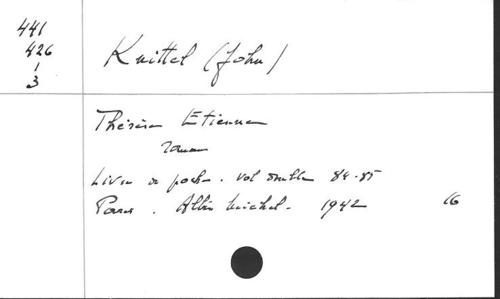 441
426
1
3
Knittel (John)
Thérèse Etienne
roman
Livre de poche. vol double 84-85
Paris. Albin Michel. 1942 16